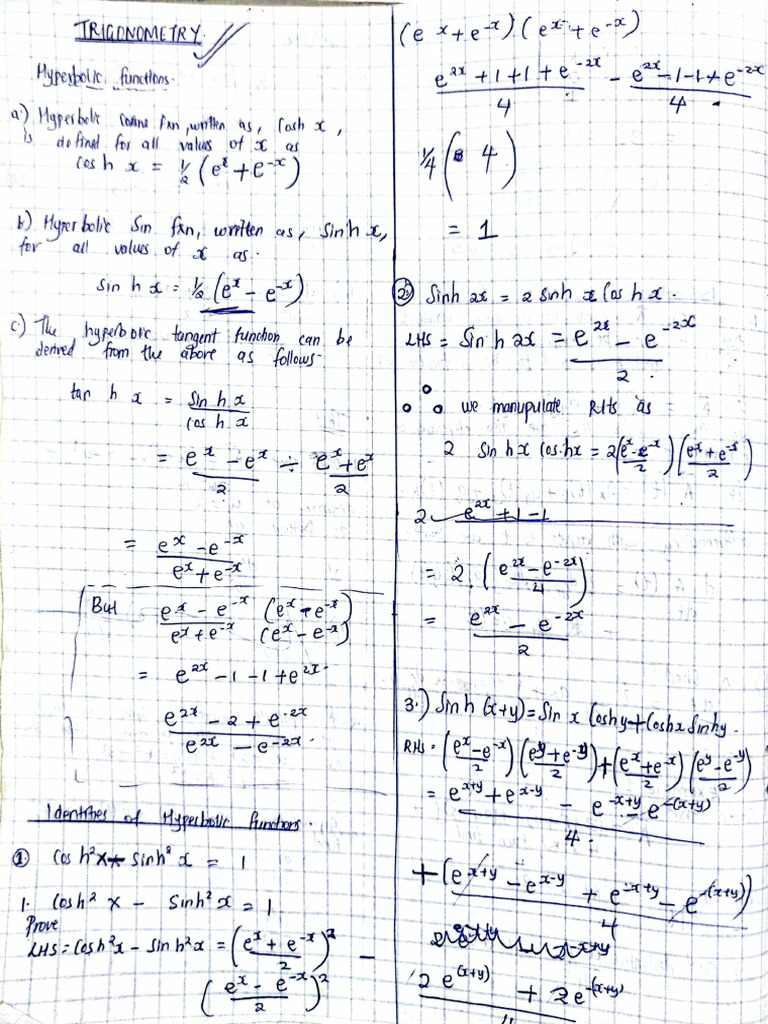 TRIGONOMETRY.
Hyperbolic functions.
a) Hyperbolic cosine fxn, written as, Cosh x,
is defined for all values of x as
cos h x = ½ (e^x + e^-x)
b) Hyperbolic Sin fxn, written as, sinh x,
for all values of x as.
sin h x = ½ (e^x - e^-x)
c) The hyperbolic tangent function can be
derived from the above as follows.
tan h x = sin h x / cos h x
= (e^x - e^x)/2 ÷ (e^x + e^x)/2
= (e^x - e^-x)/(e^x + e^-x)
But (e^x - e^-x)/(e^x + e^-x) (e^x - e^-x)/(e^x - e^-x)
= e^2x - 1 - 1 + e^2x.
(e^2x - 2 + e^-2x)/(e^2x - e^-2x).
Identities of Hyperbolic functions.
① cos h²x - sinh² x = 1
1. Cosh² x - Sinh² x = 1
Prove
LHS = Cosh²x - Sinh²x = ((e^x + e^-x)/2)² -
((e^x - e^-x)/2)²
(e^x + e^-x) (e^x + e^-x)
(e^2x + 1 + 1 + e^-2x)/4 - (e^2x - 1 - 1 + e^-2x)/4
¼ ( 4 )
= 1
② Sinh 2x = 2 sinh x Cos h x.
LHS = Sin h 2x = (e^2x - e^-2x)/2.
∴ we manupulate RHS as
2 Sin hx Cos.hx = 2((e^x - e^-x)/2)((e^x + e^-x)/2)
2 e^2x + 1 - 1
= 2. ((e^2x - e^-2x)/4)
= (e^2x - e^-2x)/2
3.) Sinh (x+y) = Sin x Coshy + Coshx Sinhy.
RHS = ((e^x - e^-x)/2)((e^y + e^-y)/2) + ((e^x + e^-x)/2)((e^y - e^-y)/2)
= (e^x+y + e^x-y - e^-x+y - e^-(x+y))/4.
+ (e^x+y - e^x-y + e^-x+y - e^-(x+y))/4
2e^(x+y) + 2e^-(x+y)
4